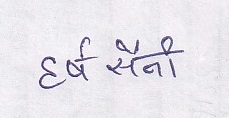 हर्ष सैनी